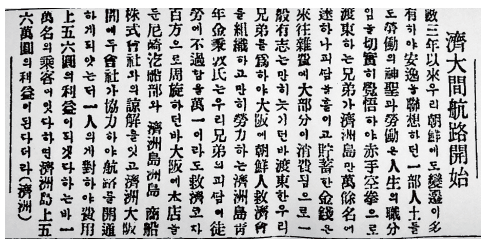 濟大間航路開始
數三年以來우리朝鮮에도變遷이多
有하야安逸을聯想하던一部人士들
도勞働의神聖과勞働은人生의職分
임을切實히覺悟하야赤手空拳으로
渡東하는兄弟가濟洲島만萬餘名에
達하나피땀을흘이고貯蓄한金錢은
來往雜費에大部分이消費됨으로一
般有志는만히늣기던바渡東한우리
兄弟를爲하야大阪에朝鮮人救濟會
를組織하고만히勞力하는濟洲島靑
年金 氏는우리兄弟의피땀이徒
勞에不過함을萬一이라도救濟코자
百方으로周旋하던바大阪에本店을
둔尼崎汽船部와濟洲島濟洲島商船
株式會社의諒解를엇고濟洲大阪
間에두會社가協力하야航路를開通
하게되얏는대一人의게對하야費用
上五六圓의利益이되겟다하는바一
萬名의乘客이잇다하면濟洲島上五
六萬圓의利益이된다더라(濟洲)